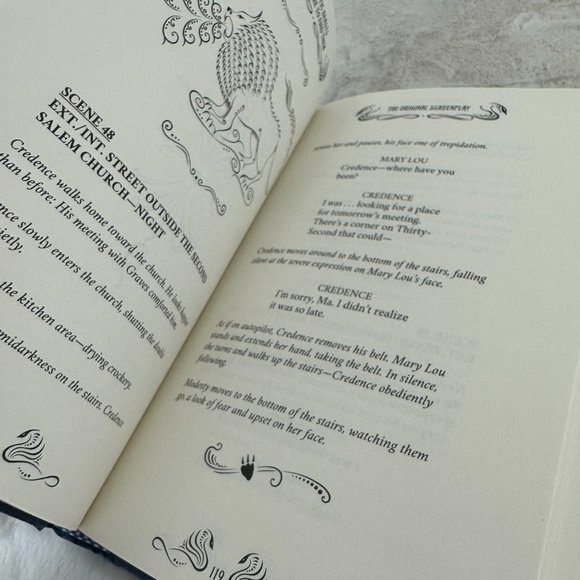 SCENE 48
EXT./INT. STREET OUTSIDE THE SECOND
SALEM CHURCH—NIGHT
Credence walks home toward the church. He looks happier
than before: His meeting with Graves comforted him.
ence slowly enters the church, shutting the double
ietly.
the kitchen area—drying crockery.
midarkness on the stairs. Credence
THE ORIGINAL SCREENPLAY
her and pauses, his face one of trepidation.
MARY LOU
Credence—where have you
been?
CREDENCE
I was . . . looking for a place
for tomorrow's meeting.
There's a corner on Thirty-
Second that could—
Credence moves around to the bottom of the stairs, falling
silent at the severe expression on Mary Lou's face.
CREDENCE
I'm sorry, Ma. I didn't realize
it was so late.
As if on autopilot, Credence removes his belt. Mary Lou
stands and extends her hand, taking the belt. In silence,
she turns and walks up the stairs—Credence obediently
following.
Modesty moves to the bottom of the stairs, watching them
go, a look of fear and upset on her face.
119